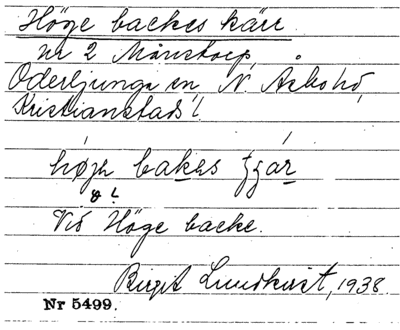 Höge backes kärr
nr 2 Månstorp,
Oderljunga sn, N. Åsbo hd,
Kristianstads l.
Vid Höge backe.
Birgit Lundkvist, 1938.
Nr 5499.